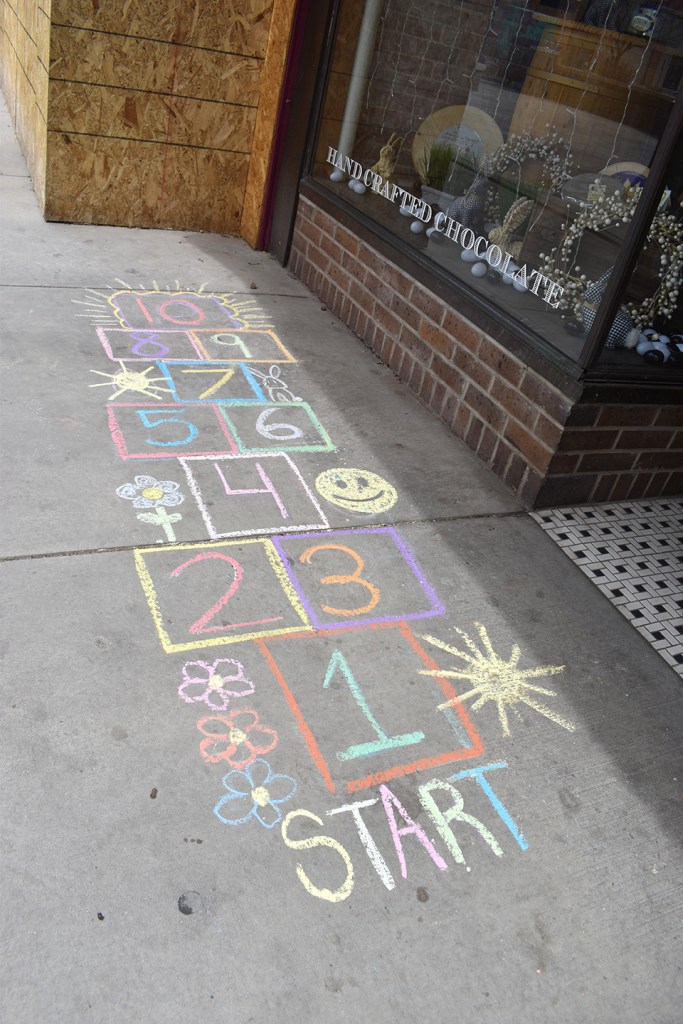 HAND CRAFTED CHOCOLATE
10
8 9
7
5 6
4
2 3
1
START